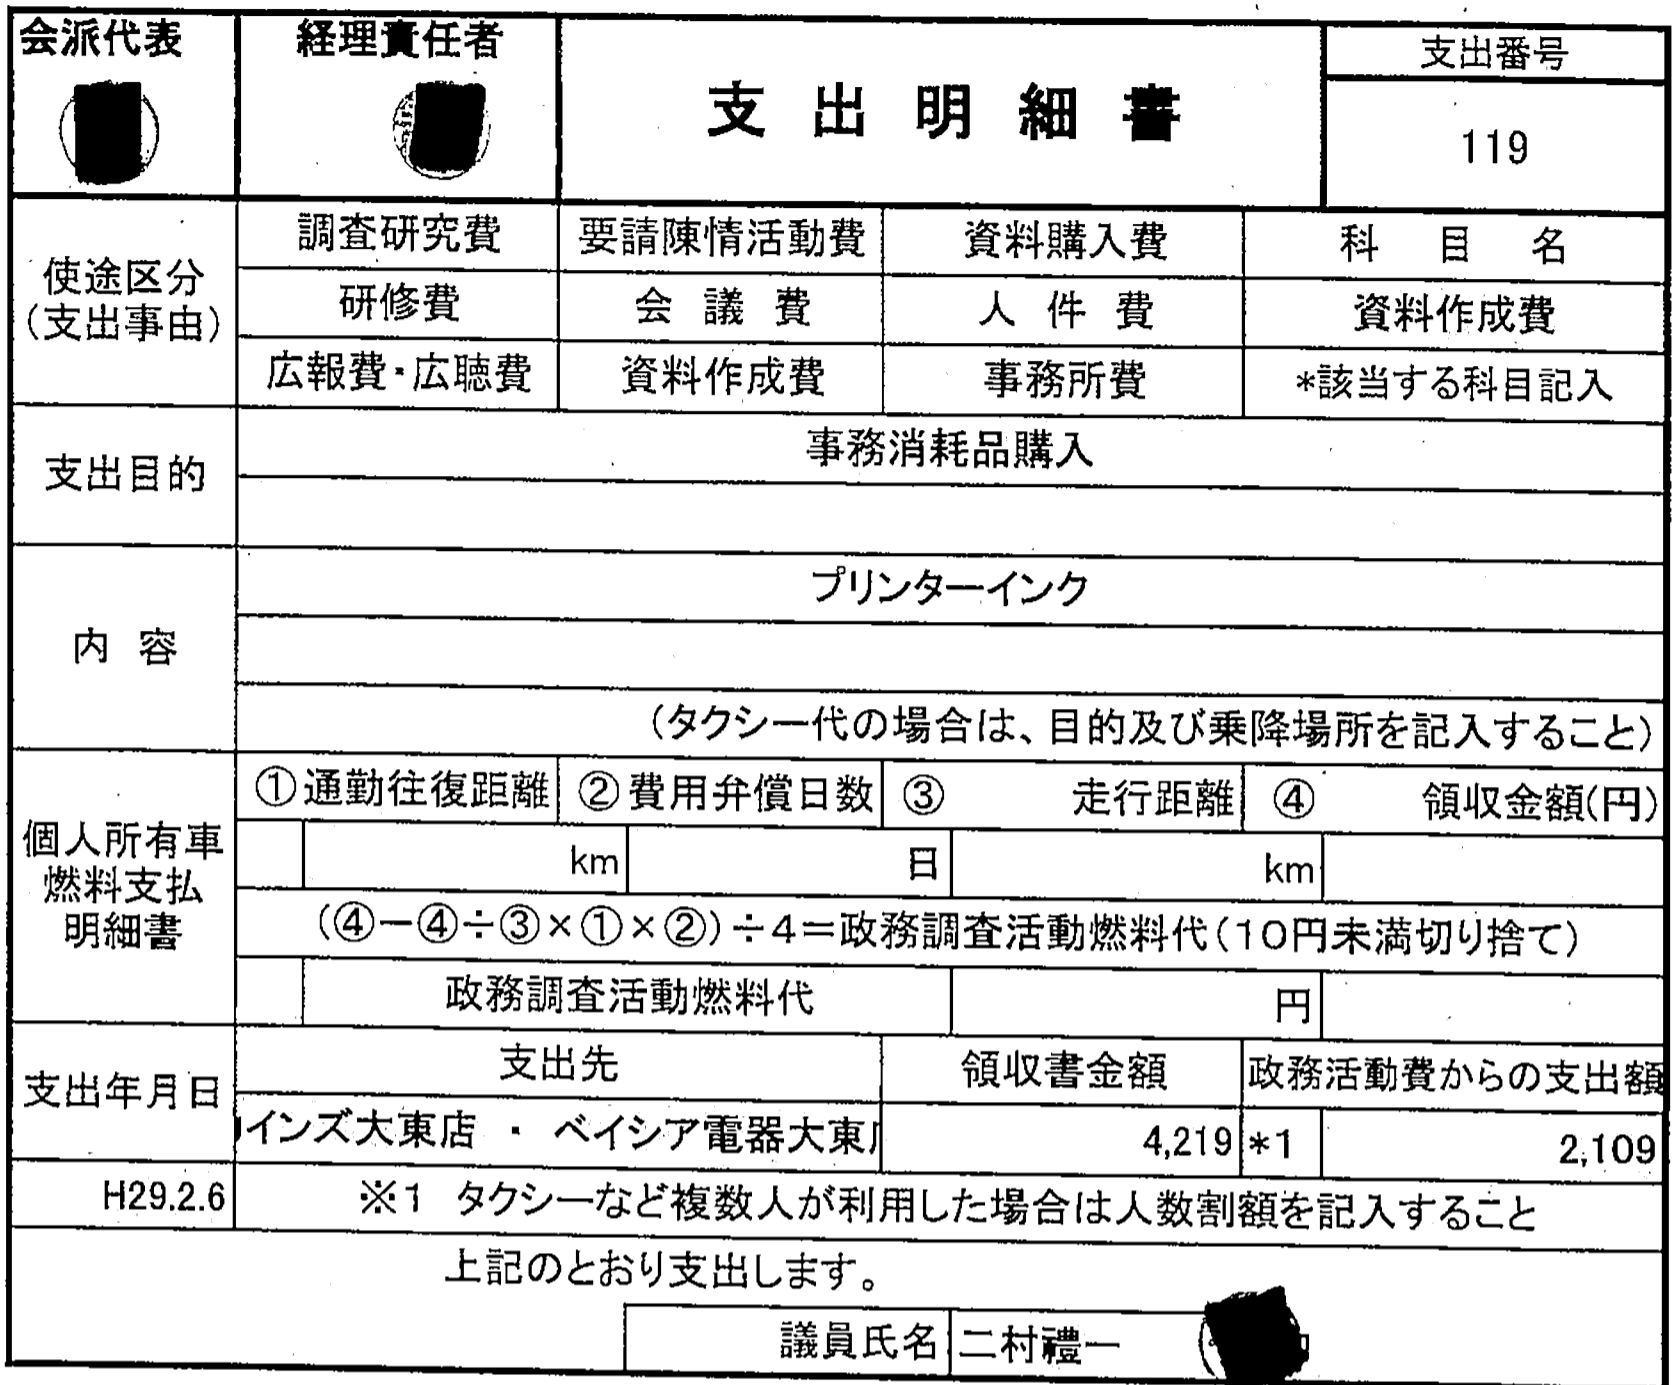 会派代表
経理責任者
支出明細書
支出番号
119
使途区分
(支出事由)
調査研究費 要請陳情活動費 資料購入費 科目名
研修費 会議費 人件費 資料作成費
広報費・広聴費 資料作成費 事務所費 *該当する科目記入
支出目的
事務消耗品購入
内容
プリンターインク
(タクシー代の場合は、目的及び乗降場所を記入すること)
個人所有車
燃料支払
明細書
①通勤往復距離 ②費用弁償日数 ③ 走行距離 ④ 領収金額(円)
km 日 km
(④-④÷③×①×②)÷4=政務調査活動燃料代(10円未満切り捨て)
政務調査活動燃料代 円
支出年月日
支出先 領収書金額 政務活動費からの支出額
インズ大東店 ・ ベイシア電器大東 4,219 *1 2,109
H29.2.6 ※1 タクシーなど複数人が利用した場合は人数割額を記入すること
上記のとおり支出します。
議員氏名 二村禮一